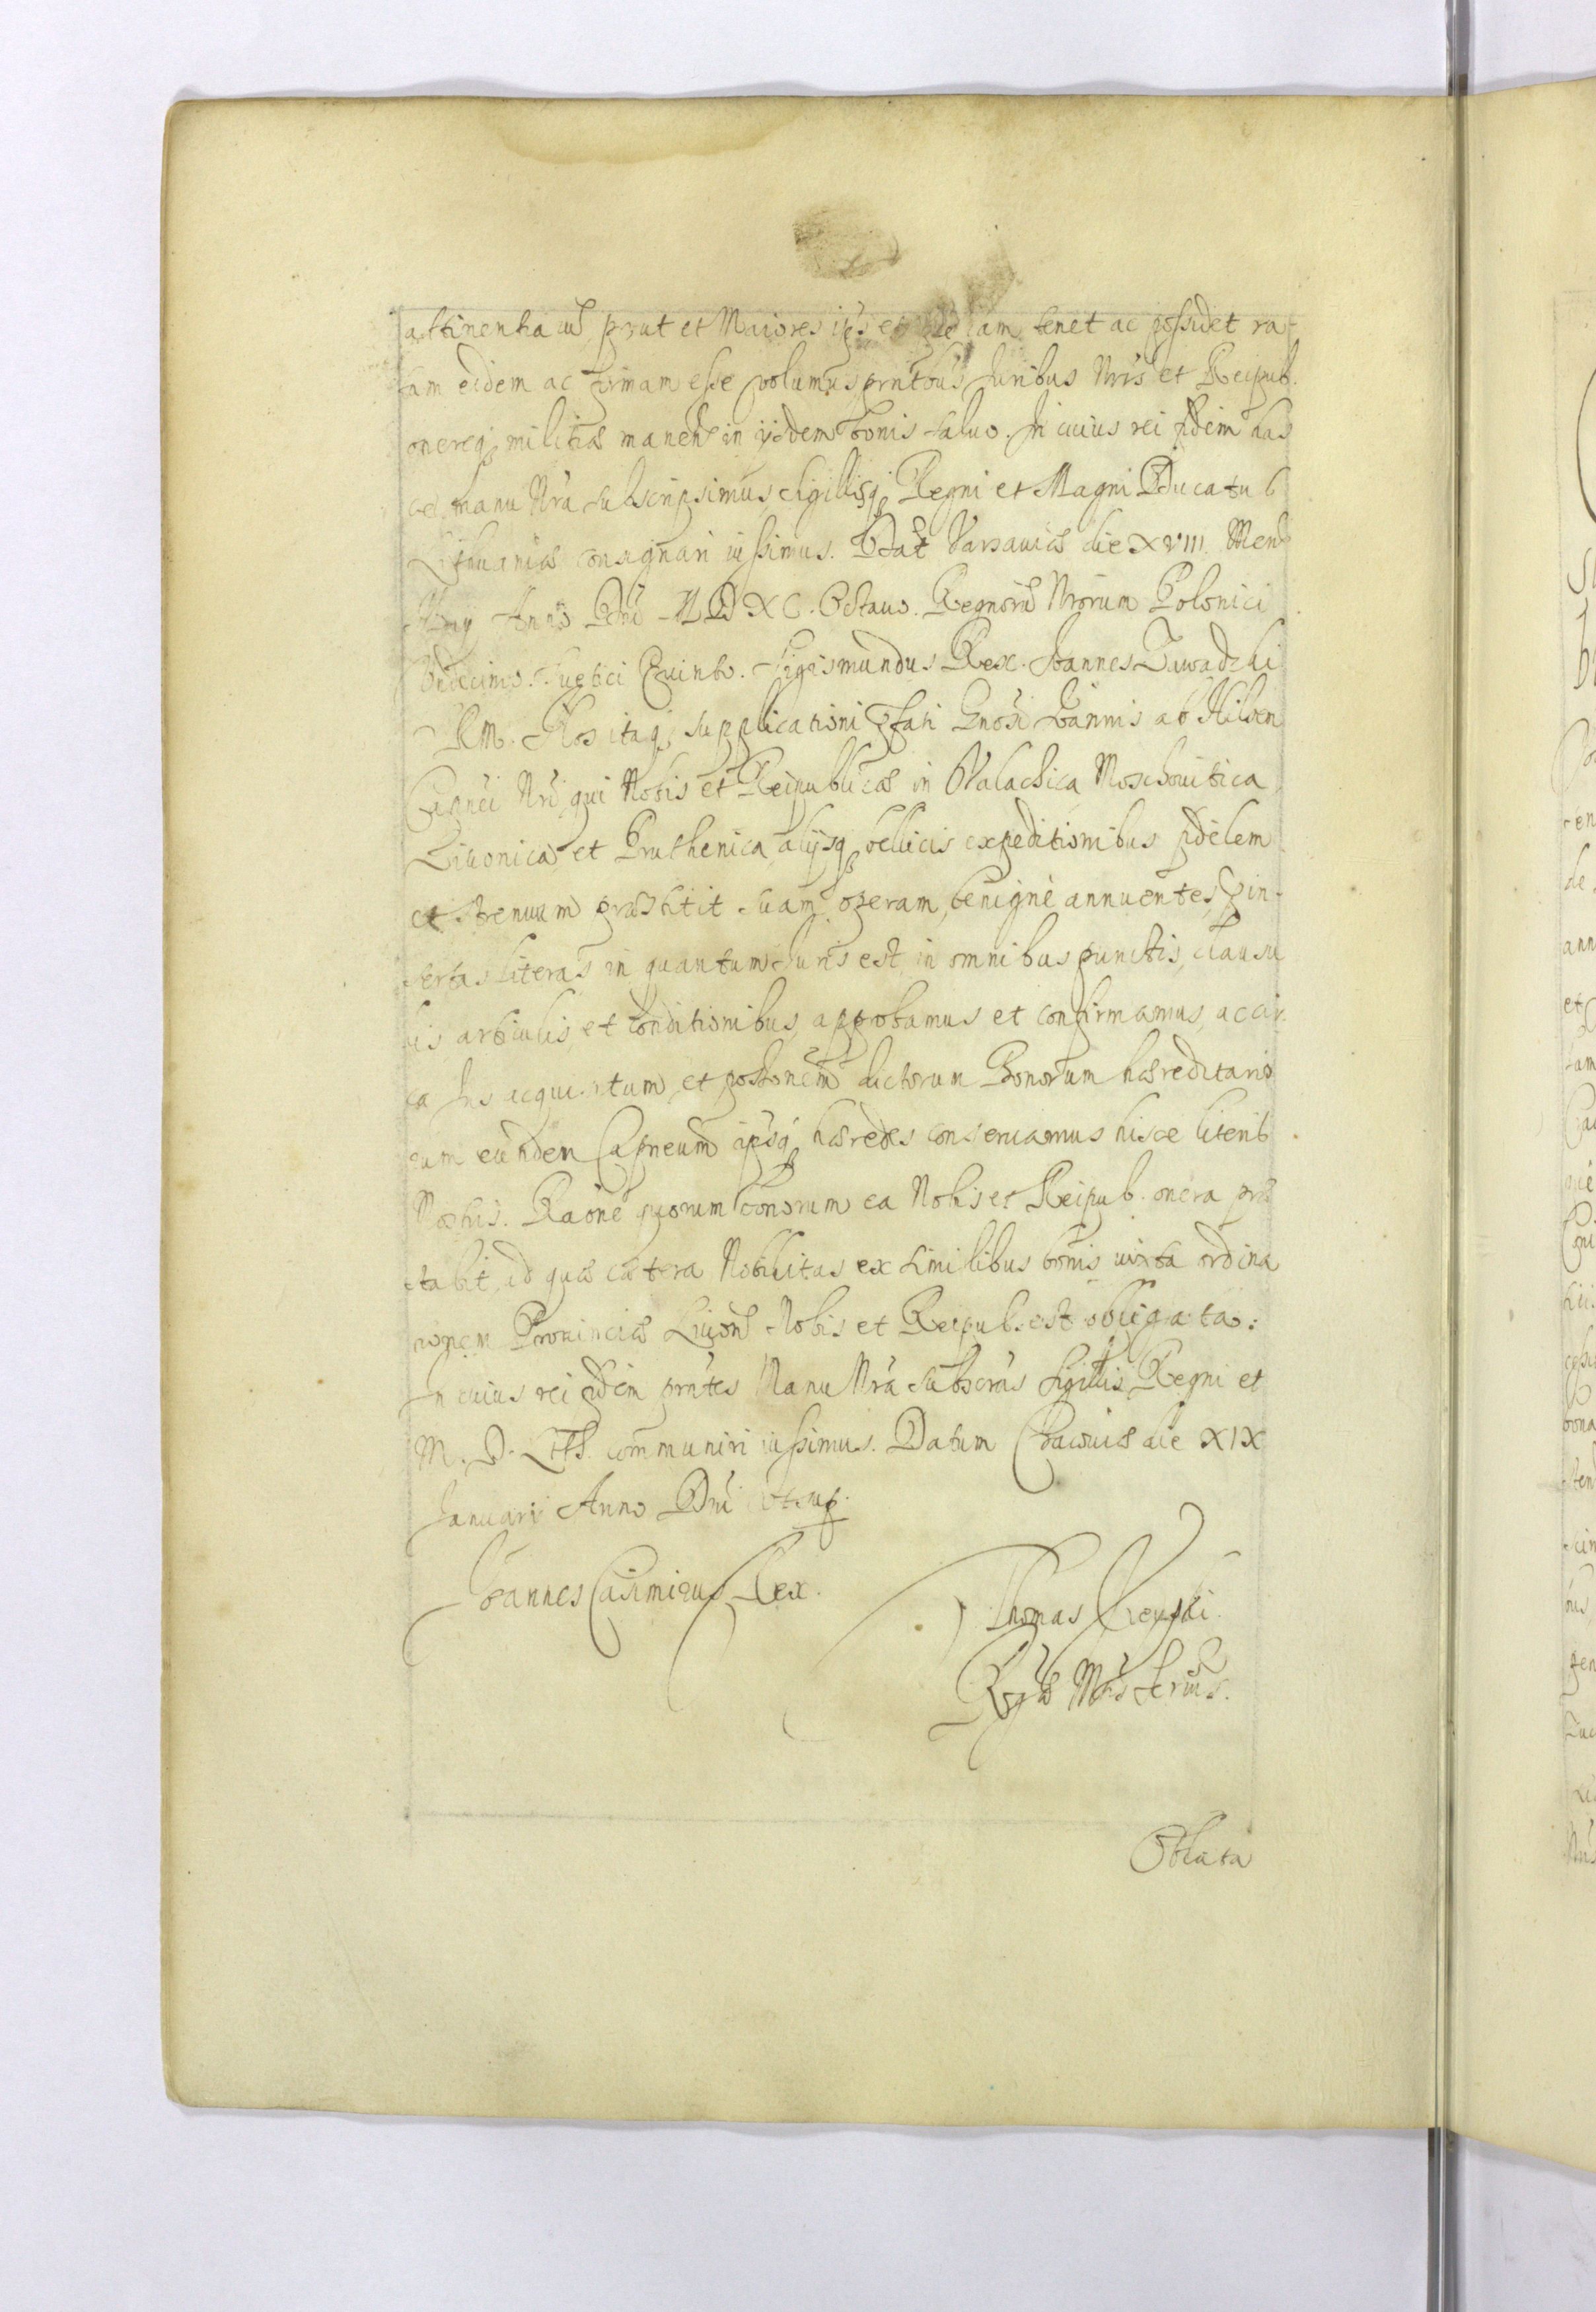 attinentia cũ, prout et Maiores ip̃s et iam tenet ac possidet ra-
tam eidem ac firmam esse volumus prñtibus Juribus Nr̃is et Reipub.
onereq; militiæ manen̄ in ijsdem bonis saluo. In cuius rei fidem has
ce manu Nr̃a subscripsimus, sigillisq; Regni et Magni Ducatus
Lithuaniæ consignari iussimus. Dat̃ Varsauiæ die XVIII. Men̄
Anno Dni MDXC. Octauo. Regnorũ Nrorum Polonici
Vndecimo. Suetici Quinto. Sigismundus Rex. Ioannes Zawadzki
RM. Nos itaq; supplicationi pfati Gnosi Ioannis ab Hilsen
Capnei Nr̃i qui Nobis et Reipublicæ in Valachica Moschouitica
Liuonica et Pruthenica alijsq; bellicis expeditionibus fidelem
et strenuum præstitit suam operam, benignè annuentes, pin-
sertas literas in quantum Juris est in omnibus punctis, clausu
lis articulis, et conditionibus, approbamus et confirmamus, ac cir-
ca Ius acquisitum, et possonem dictorum Bonorum hæreditario
eum eũndem Capneum ipsiq; hæredes conseruamus hisce literis
Nostris. Raõne quorum bonorum ea Nobis et Reipub. onera præ
stabit, ad quæ cætera Nobilitas ex similibus bonis iuxta ordina
tionem Prouinciæ Liuon̄ Nobis et Reipub. est obligata:
In cuius rei fidem prñtes Manu Nr̃a subscrãs Sigillis Regni et
M. D. Litt. communiri iussimus. Datum Cracouiæ die XIX
Januarij Anno Dni ut sup.
Ioannes Casimirus Rex.
Thomas
Regiæ Mtis Secrius.
Oblata